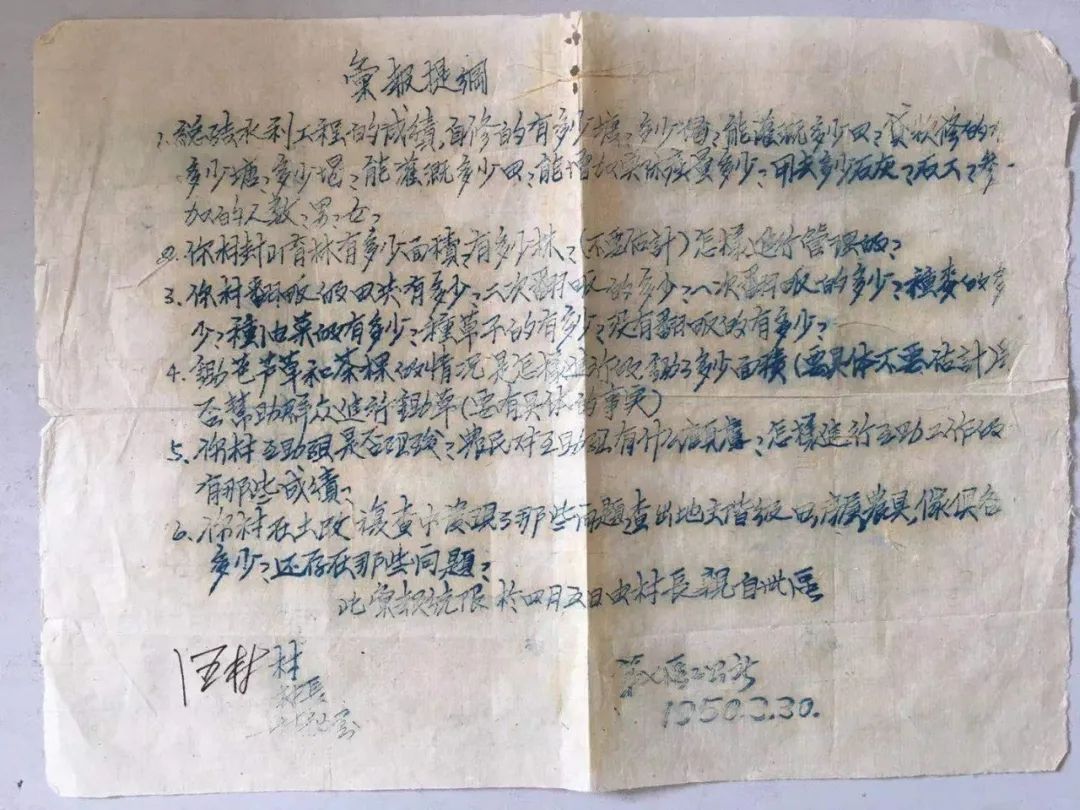 彙报提綱
1、總结水利工程的成績,自修的有多少塘、多少堨、能灌溉多少田?貸款修的
多少塘?多少堨?能灌溉多少田?能增加 产量多少?用去多少石灰?
加的人数?男?女?
2、你村封山育林有多少面積?有多少株?(不要估計)怎樣進行管理的?
3、你村翻耕的田共有多少?二次翻 的多少?一次翻 的多少?種麥的多
少?種油菜的有多少?種草子的有多少?没有翻 的有多少?
4、鋤芭芦草和茶棵的情况是怎樣進行的?鋤了多少面積(要具体不要估計)是
否幫助群众進行鋤草(要有具体的事实)
5、你村互助組是否 ?農民对互助組有什么 ?怎樣進行互助工作的
有那些成績?
6、你村在土改複查中发現了那些问題?查出地主階級田 房屋農具 傢俱各
多少?还存在那些问題?
此彙報 限於四月五日由村長親自 區
伍村 村
村長
1950.3.30.